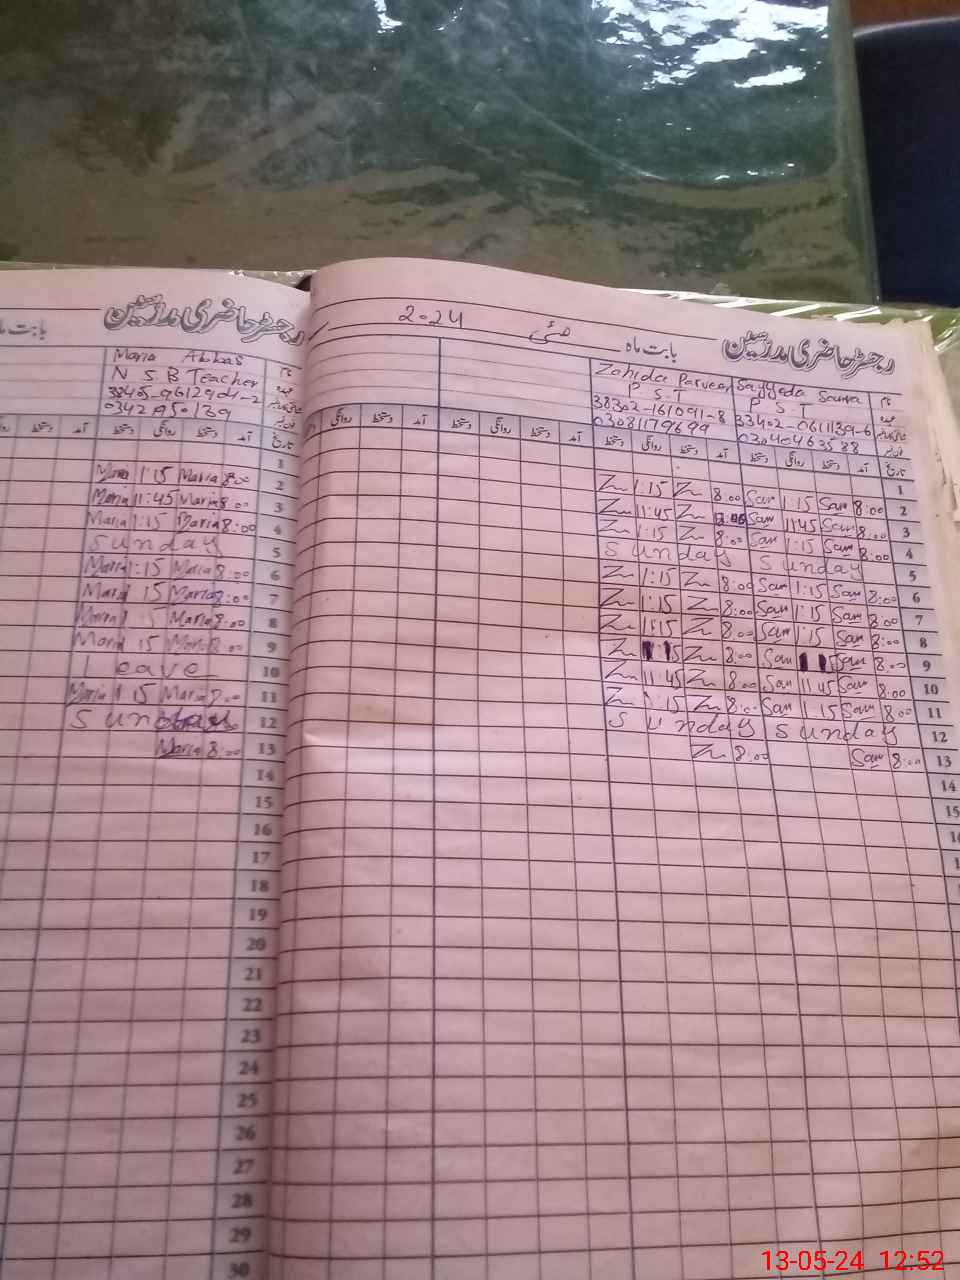 رجسٹر حاضری مدرسین
بابت ماہ
Maria Abbas
N S B Teacher
آمد دستخط روانگی دستخط
تاریخ
1
Maria 1:15 Maria 8:00 2
Maria 11:45 Maria 8:00 3
Maria 1:15 Maria 8:00 4
Sunday 5
Maria 1:15 Maria 8:00 6
Maria 15 Maria 8:00 7
Maria 1 15 Maria 8:00 8
Maria 15 Maria 8:00 9
leave 10
Maria 1 15 Maria 8:00 11
Sunday 12
Maria 8:00 13
14
15
16
17
18
19
20
21
22
23
24
25
26
27
28
29
30
رجسٹر حاضری مدرسین
بابت ماہ مئی 2024
Zahida Parveen Sayyeda Saima
P S T P S T
38302-161091-8 33402-0611139-6
03081179699 03040463588
تاریخ آمد دستخط روانگی دستخط آمد دستخط روانگی دستخط آمد دستخط روانگی دستخط آمد دستخط روانگی
1
1:15 8:00 Sam 1:15 Sam 8:00 2
11:45 8:00 Sam 11:45 Sam 8:00 3
1:15 8:00 Sam 1:15 Sam 8:00 4
Sunday Sunday 5
1:15 8:00 Sam 1:15 Sam 8:00 6
1:15 8:00 Sam 1:15 Sam 8:00 7
1:15 8:00 Sam 1:15 Sam 8:00 8
1:15 8:00 Sam 1 15 Sam 8:00 9
11:45 8:00 Sam 11 45 Sam 8:00 10
1:15 8:00 Sam 1:15 Sam 8:00 11
Sunday Sunday 12
8:00 Sam 8:00 13
14
15
13-05-24 12:52